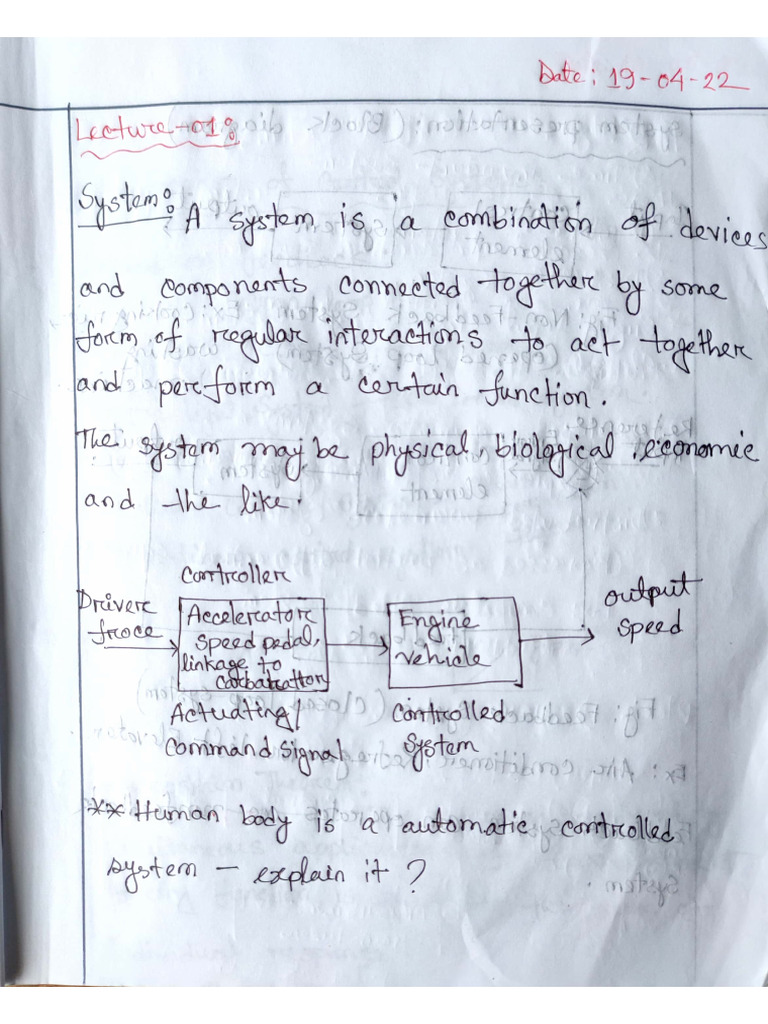 Date: 19-04-22
Lecture-01:
System: A system is a combination of devices
and components connected together by some
form of regular interactions to act together
and perform a certain function.
The system may be physical, biological, economic
and the like.
Controller
Driver
froce
Accelerator
speed pedal,
linkage to
Engine
vehicle
output
speed
Actuating/
Command signal
Controlled
System
** Human body is a automatic controlled
system - explain it ?